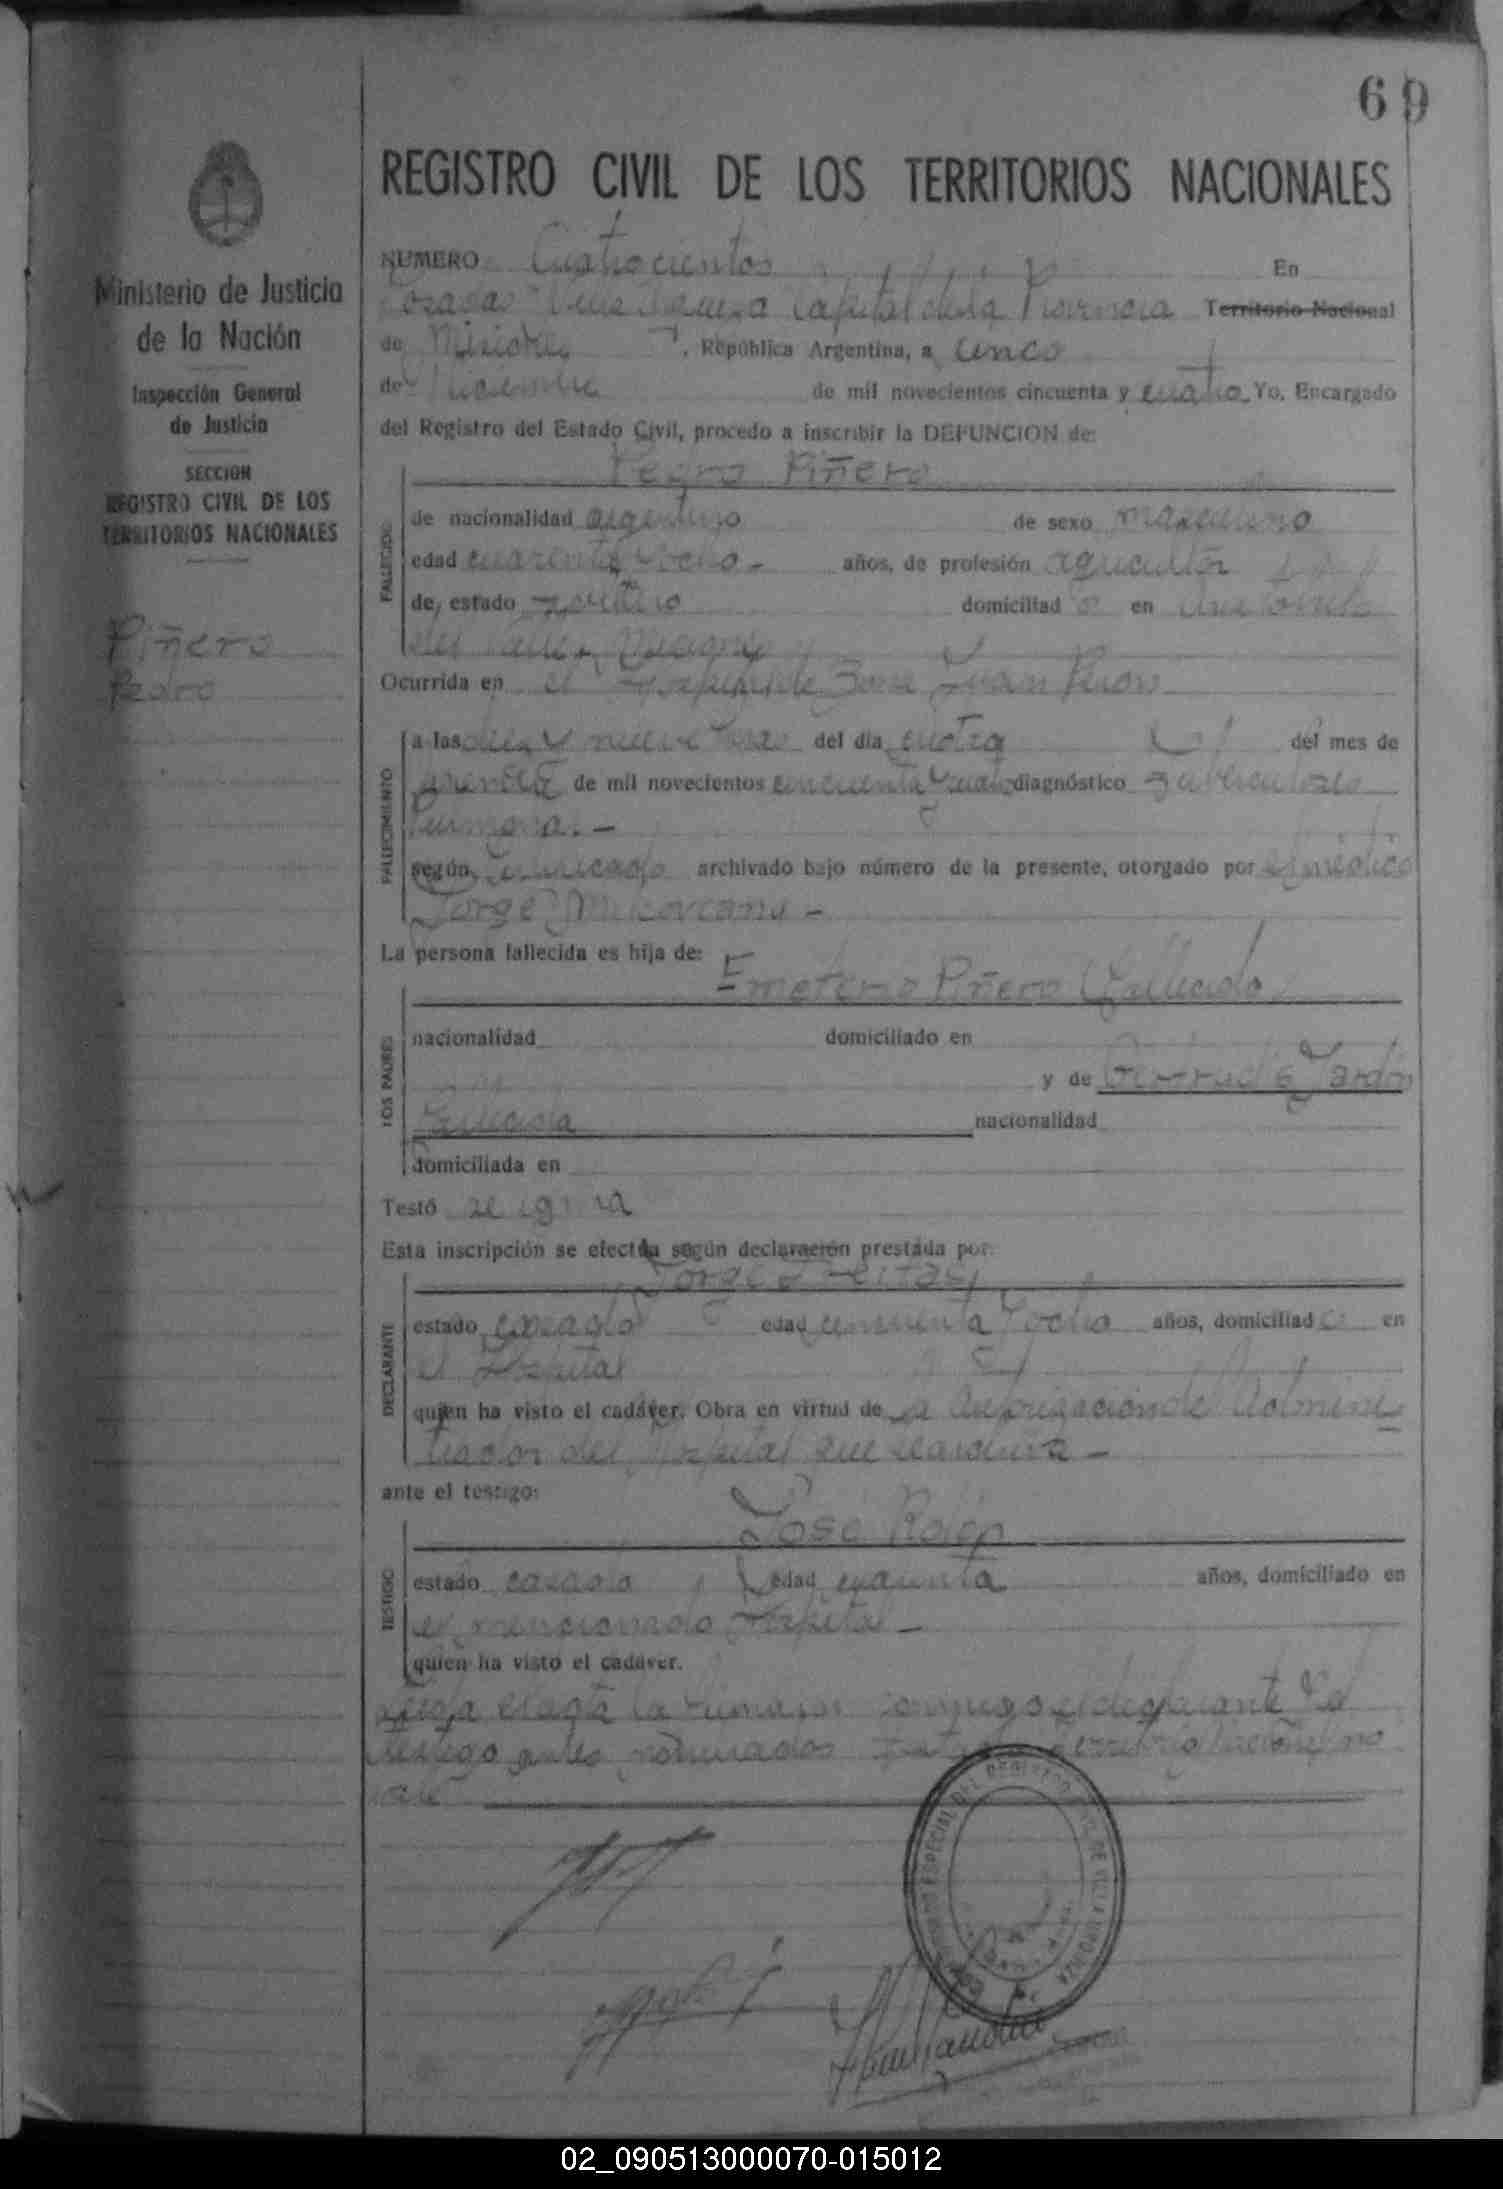 69
REGISTRO CIVIL DE LOS TERRITORIOS NACIONALES
Ministerio de Justicia
de la Nación
Inspección General
de Justicia
SECCION
REGISTRO CIVIL DE LOS
TERRITORIOS NACIONALES
Piñero
Pedro
NUMERO Cuatrocientos En
Posadas Villa Capital de la Provincia Territorio Nacional
de Misiones, República Argentina, a cinco
de de mil novecientos cincuenta y cuatro Yo, Encargado
del Registro del Estado Civil, procedo a inscribir la DEFUNCION de:
Pedro Piñero
FALLECIDO
de nacionalidad argentino de sexo masculino
edad cuarenta y ocho - años, de profesión agricultor
de estado soltero domiciliado en
del Valle,
Ocurrida en el Hospital de Juan Perón
FALLECIMIENTO
a las diez y nueve horas del día cuatro del mes de
de mil novecientos cincuenta y cuatro diagnóstico Tuberculosis
Pulmonar. -
según certificado archivado bajo número de la presente, otorgado por el médico
Jorge -
La persona fallecida es hija de:
LOS PADRES
Emeterio Piñero fallecido
nacionalidad domiciliado en
y de Gertrudis Jardin
fallecida nacionalidad
domiciliada en
Testó se ignora
Esta inscripción se efectúa según declaración prestada por:
DECLARANTE
Jorge Feitas
estado casado edad cincuenta y ocho años, domiciliado en
el Hospital
quien ha visto el cadáver. Obra en virtud de la autorización del Adminis
trador del Hospital que
ante el testigo:
TESTIGO
José Rolón
estado casado edad cuarenta años, domiciliado en
el mencionado Hospital -
quien ha visto el cadáver.
Leida el acta la firmaron conmigo el declarante y el
testigo antes nombrados Testado: Territorio Nacional no
vale
02_090513000070-015012